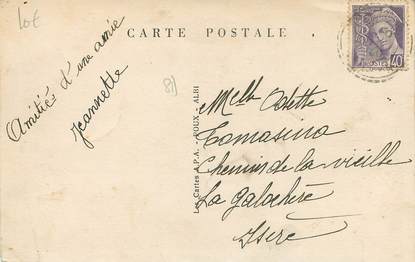 lot
CARTE POSTALE
Amitiés d'une amie
Jeannette
81
Les Cartes A.P.A. - POUX - ALBI
Melle Odette
Tomasino
Chemin de la vieille
La galochère
Isère
40